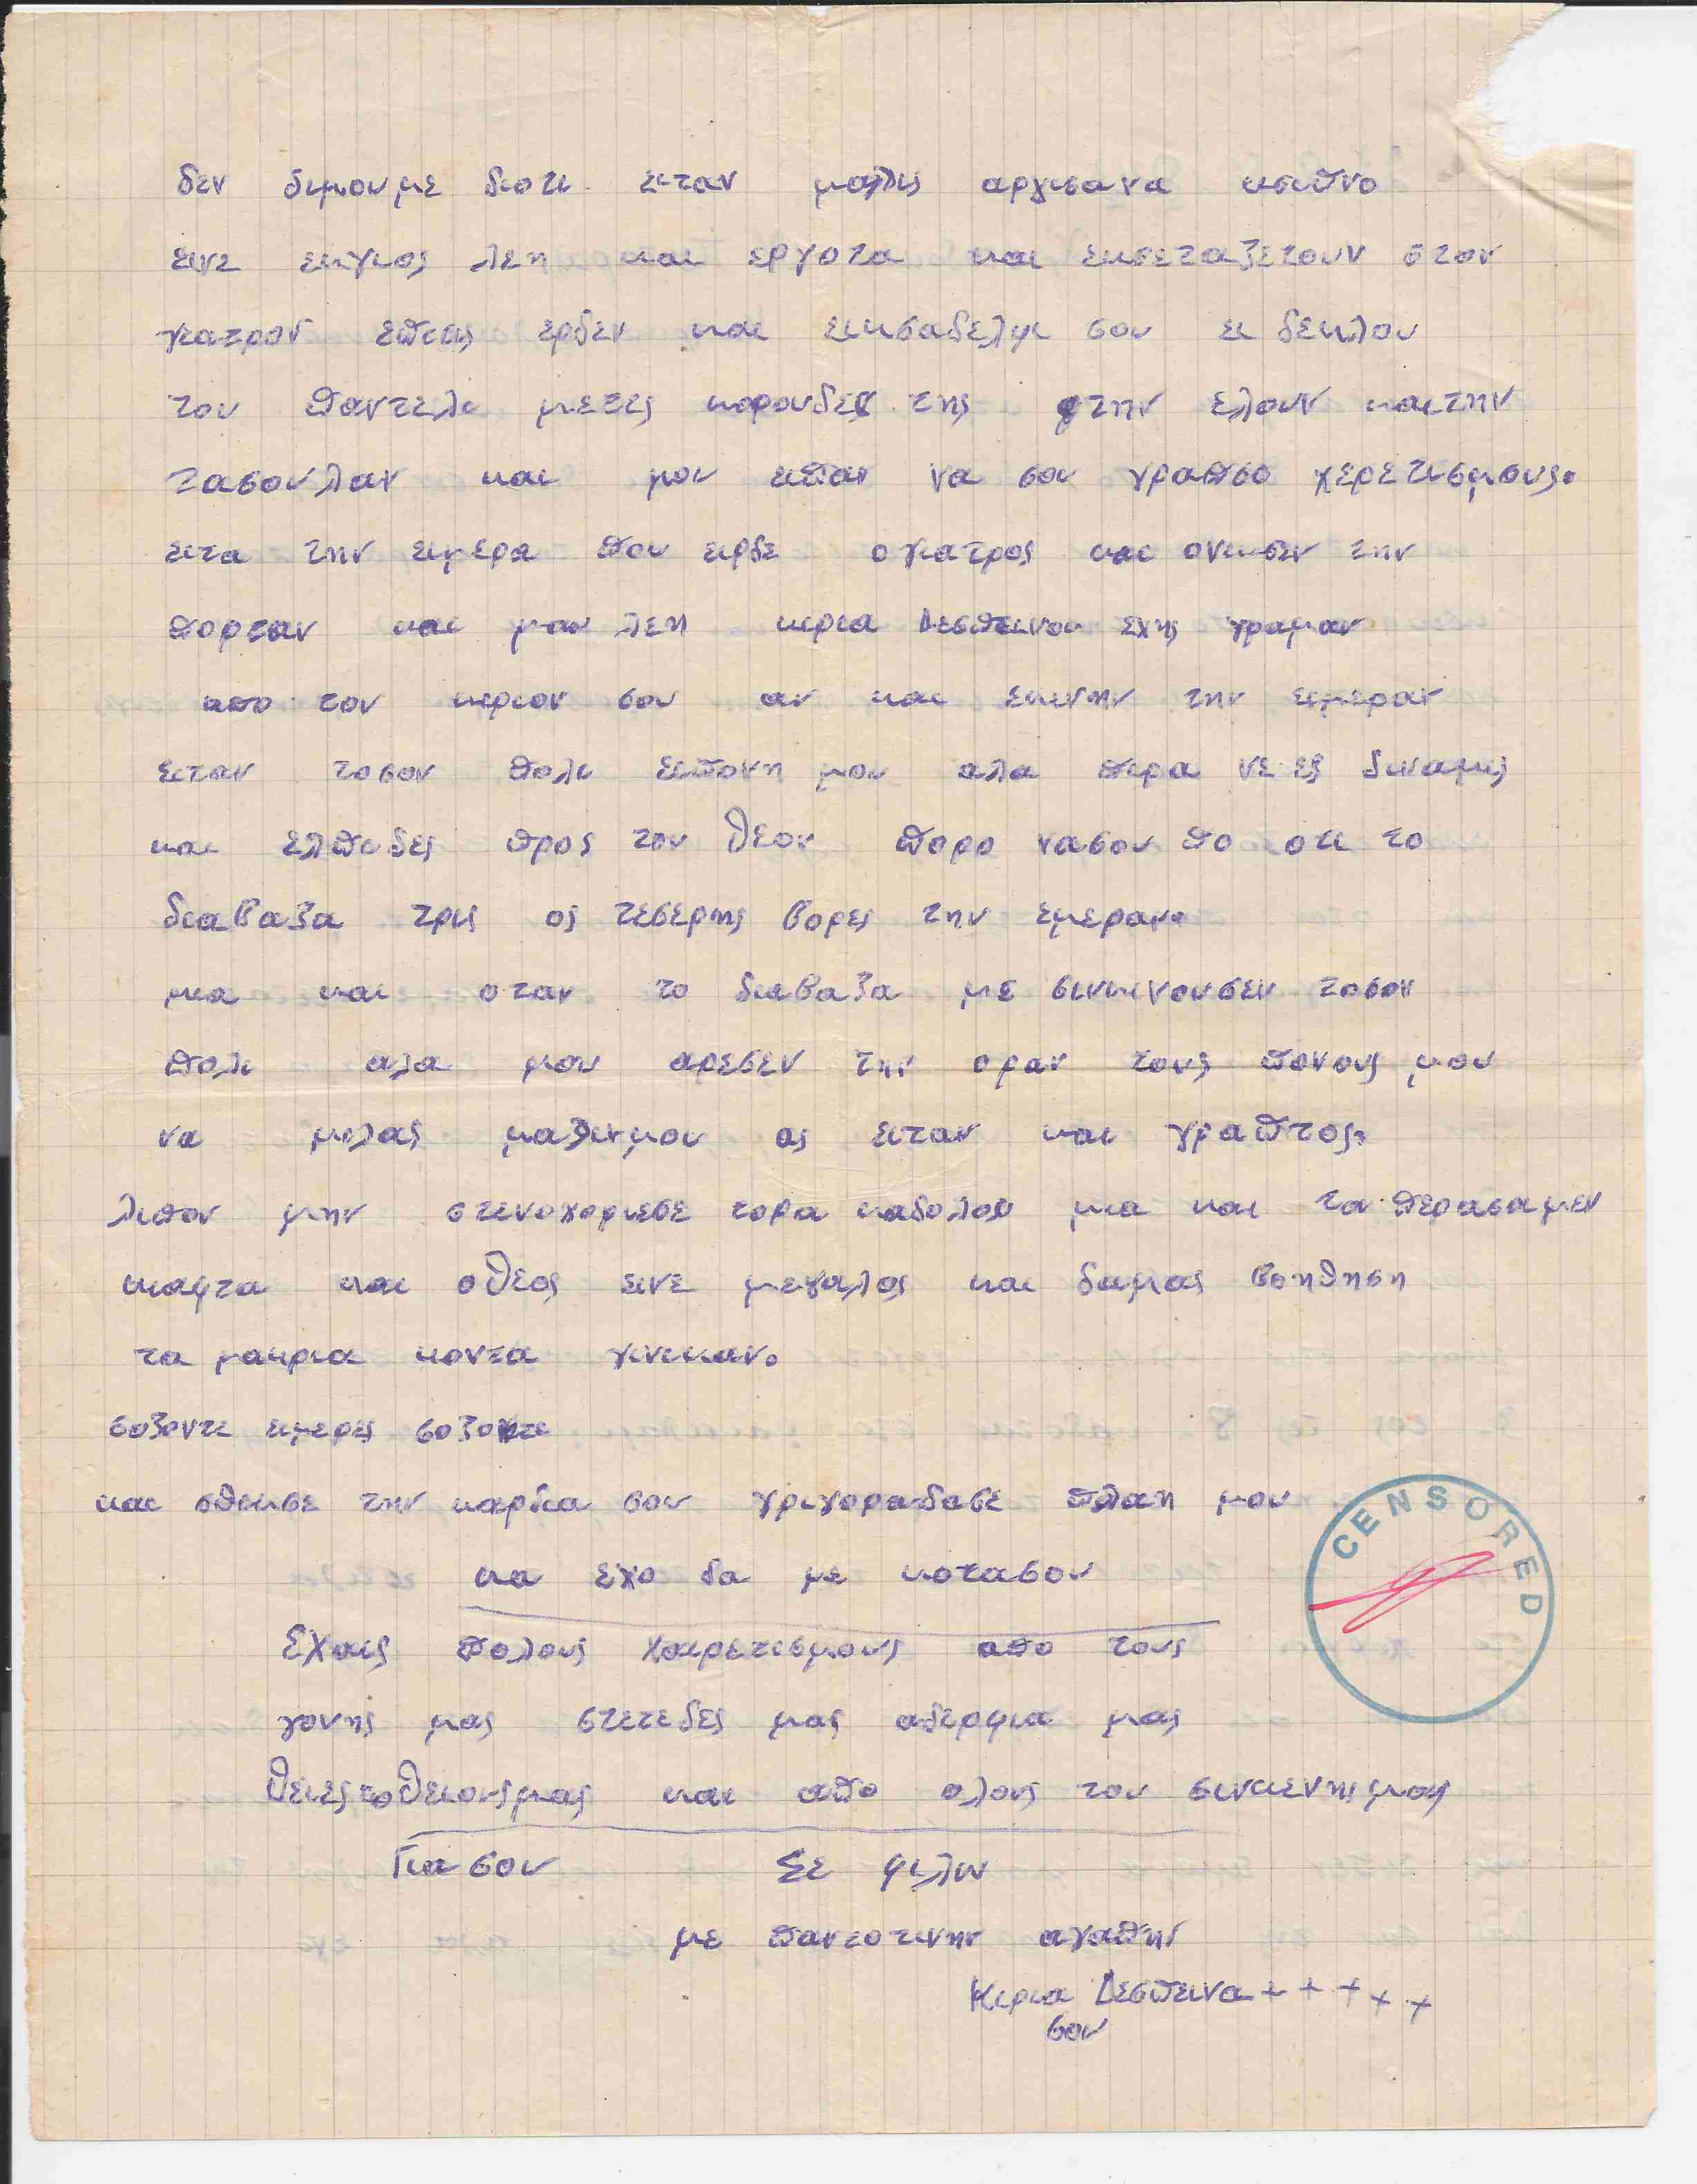 δεν διμουμε διοτι ειταν μολις αργισα να κσιπνο
εινε εκγιος λεη και εργοτα και εκσεταζετουν στον
γιατρον επισις ερδεν και εικσαδελφι σου ει δεκλου
του παντελι μετες κορουδες της στην ελουν και την
τασουλαν και μου ειπαν να σου γραπσο χερετισμους.
ειτα την ειμερα που ειρδε ο γιατρος και ονικσεν την
πορταν και μου λεη κιρια Δεσπεινου εχης γραμαν
απο τον κιριον σου αν και εκεινην την ειμεραν
ειταν τοσον πολι ειπονη μου αλα πιρα νεες διναμις
και ελπιδες προς τον θεον πορο νασου πο οτι το
διαβαζα τρις ος τεσερης βορες την εμεραν.
μια και οταν το διαβαζα με σινκινουσεν τοσον
πολι αλα μου αρεσεν την οραν τους πονους μου
να μιλας μαζινμου ας ειταν και γραπτος.
λιπον μην στενοχοριεσε τορα καδολου μια και τα περασαμεν
καφτα και ο θεος εινε μεγαλος και δαμας βοηθηση
τα μακρια κοντα γινικαν.
σοζοντε ειμερες σοζοντε
και σπικσε την καρδια σου γριγορα δασε πλαη μου
να εχο δα με κοτασου
Εχαις πολους χαιρετεσμους απο τους
γονης μας στετεδες μας αδερφια μας
θειες το θειους μας και απο ολους του σινγενης μας
Για σου Σε φιλω
με παντοτινην αγαπην
Κιρια Δεσπεινα + + + + +
σου
CENSORED